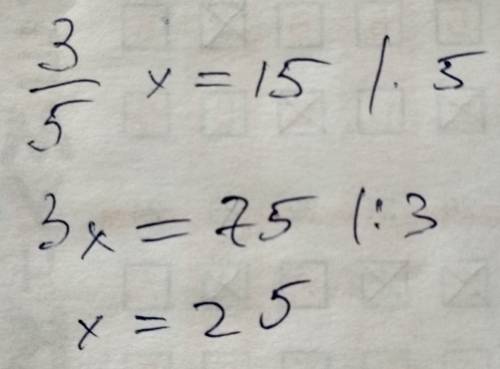 3/5 x = 15 / · 5
3x = 75 /: 3
x = 25